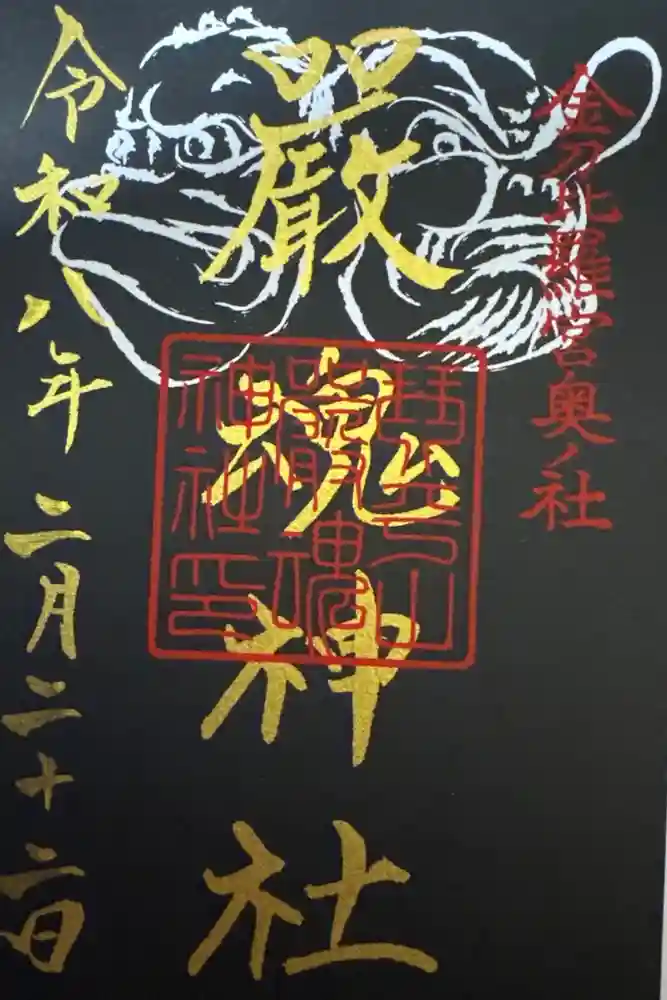 金刀比羅宮奥ノ社
嚴魂神社
琴平山
嚴魂
神社印
令和八年二月二十二日